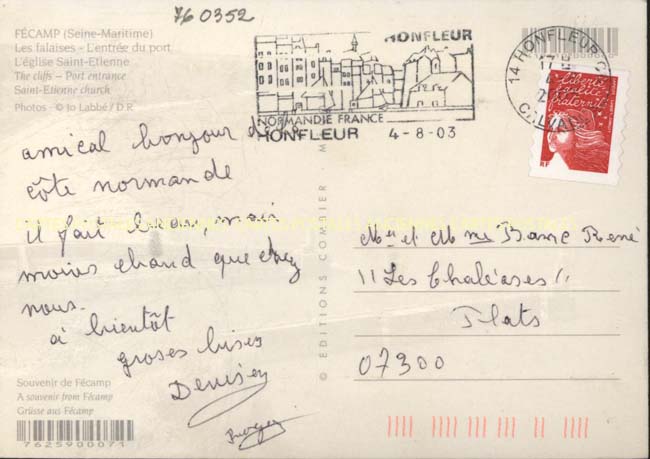 76 0352
FÉCAMP (Seine-Maritime)
Les falaises - L'entrée du port
L'église Saint-Etienne
The cliffs – Port entrance
Saint-Etienne church
Photos - © Jo Labbé / D.R.
HONFLEUR
NORMANDIE FRANCE
HONFLEUR 4-8-03
14 HONFLEUR
CALVADOS
liberté
égalité
fraternité
RF
amical bonjour de la
côte normande
il fait beau mais
moins chaud que chez
nous.
à bientôt
groses bises
Denise
© EDITIONS COMBIER
Mr et Mme Banc René
"Les Chaléases"
Plats
07300
Souvenir de Fécamp
A souvenir from Fécamp
Grüsse aus Fécamp
7625900071